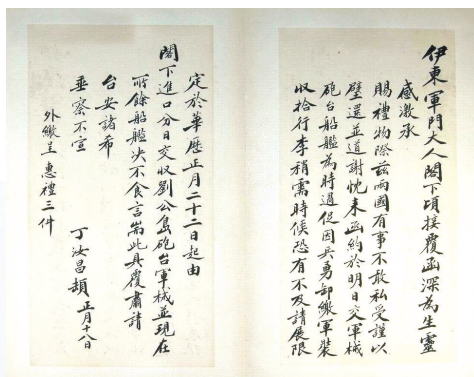 伊東軍門大人閣下頃接覆函深為生靈
感激承
賜禮物際茲兩國有事不敢私受謹以
璧還並道謝忱来函約於明日交軍械
砲台船艦為時過促因兵勇卸繳軍裝
收拾行李稍需時候恐有不及請展限
定於華歷正月二十二日起由
閣下進口分日交收劉公島砲台軍械並現在
所餘船艦決不食言耑此具覆肅請
台安諸希
垂察不宣
丁汝昌頓 正月十八日
外繳呈 惠禮三件